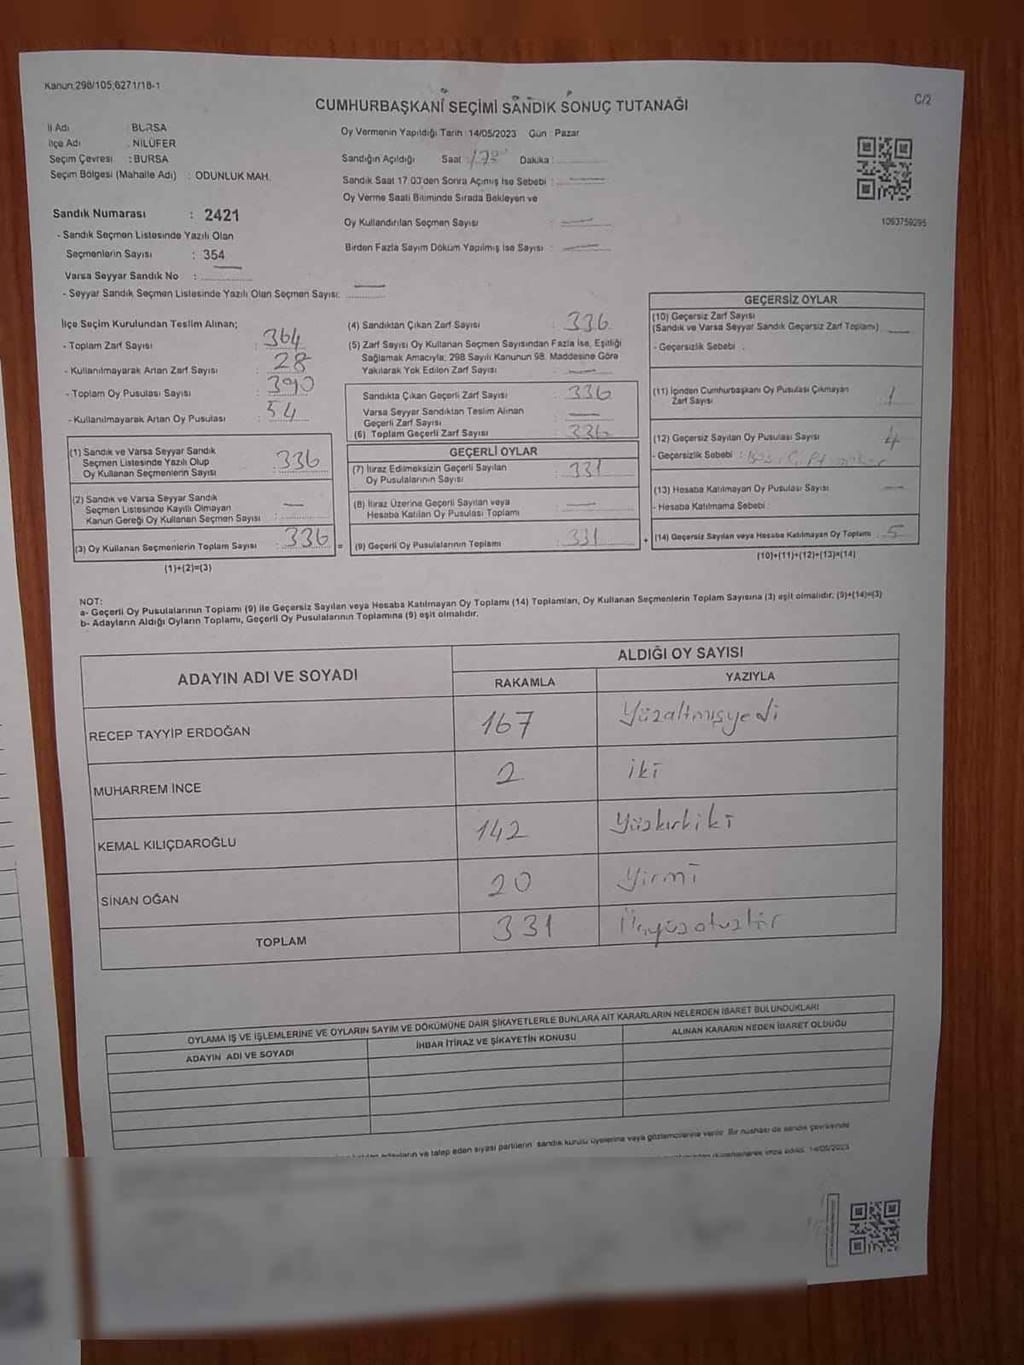 Kanun:298/105,6271/18-1
C/2
CUMHURBAŞKANI SEÇİMİ SANDIK SONUÇ TUTANAĞI
İl Adı BURSA
İlçe Adı . NİLÜFER
Seçim Çevresi : BURSA
Seçim Bölgesi (Mahalle Adı) : ODUNLUK MAH.
Oy Vermenin Yapıldığı Tarih : 14/05/2023 Gün : Pazar
Sandığın Açıldığı Saat : Dakika :
Sandık Saat 17.00'den Sonra Açılmış İse Sebebi :
Oy Verme Saati Bitiminde Sırada Bekleyen ve
Oy Kullandırılan Seçmen Sayısı :
Birden Fazla Sayım Döküm Yapılmış İse Sayısı :
1093759295
Sandık Numarası : 2421
- Sandık Seçmen Listesinde Yazılı Olan
Seçmenlerin Sayısı : 354
Varsa Seyyar Sandık No :
- Seyyar Sandık Seçmen Listesinde Yazılı Olan Seçmen Sayısı:
İlçe Seçim Kurulundan Teslim Alınan;
- Toplam Zarf Sayısı : 364
- Kullanılmayarak Artan Zarf Sayısı : 28
- Toplam Oy Pusulası Sayısı : 390
- Kullanılmayarak Artan Oy Pusulası : 54
(1) Sandık ve Varsa Seyyar Sandık
Seçmen Listesinde Yazılı Olup
Oy Kullanan Seçmenlerin Sayısı : 336
(2) Sandık ve Varsa Seyyar Sandık
Seçmen Listesinde Kayıtlı Olmayan
Kanun Gereği Oy Kullanan Seçmen Sayısı : —
(3) Oy Kullanan Seçmenlerin Toplam Sayısı : 336
(1)+(2)=(3)
(4) Sandıktan Çıkan Zarf Sayısı : 336
(5) Zarf Sayısı Oy Kullanan Seçmen Sayısından Fazla İse, Eşitliği
Sağlamak Amacıyla; 298 Sayılı Kanunun 98. Maddesine Göre
Yakılarak Yok Edilen Zarf Sayısı : —
Sandıkta Çıkan Geçerli Zarf Sayısı : 336
Varsa Seyyar Sandıktan Teslim Alınan
Geçerli Zarf Sayısı : —
(6) Toplam Geçerli Zarf Sayısı : 336
GEÇERLİ OYLAR
(7) İtiraz Edilmeksizin Geçerli Sayılan
Oy Pusulalarının Sayısı : 331
(8) İtiraz Üzerine Geçerli Sayılan veya
Hesaba Katılan Oy Pusulası Toplamı : —
= (9) Geçerli Oy Pusulalarının Toplamı : 331
GEÇERSİZ OYLAR
(10) Geçersiz Zarf Sayısı
(Sandık ve Varsa Seyyar Sandık Geçersiz Zarf Toplamı) : —
- Geçersizlik Sebebi :
(11) İçinden Cumhurbaşkanı Oy Pusulası Çıkmayan
Zarf Sayısı : 1
(12) Geçersiz Sayılan Oy Pusulası Sayısı : 4
- Geçersizlik Sebebi :
(13) Hesaba Katılmayan Oy Pusulası Sayısı : —
- Hesaba Katılmama Sebebi :
+ (14) Geçersiz Sayılan veya Hesaba Katılmayan Oy Toplamı : 5
(10)+(11)+(12)+(13)=(14)
NOT:
a- Geçerli Oy Pusulalarının Toplamı (9) ile Geçersiz Sayılan veya Hesaba Katılmayan Oy Toplamı (14) Toplamları, Oy Kullanan Seçmenlerin Toplam Sayısına (3) eşit olmalıdır. (9)+(14)=(3)
b- Adayların Aldığı Oyların Toplamı, Geçerli Oy Pusulalarının Toplamına (9) eşit olmalıdır.
ADAYIN ADI VE SOYADI
ALDIĞI OY SAYISI
RAKAMLA YAZIYLA
RECEP TAYYİP ERDOĞAN 167 Yüzaltmışyedi
MUHARREM İNCE 2 iki
KEMAL KILIÇDAROĞLU 142 Yüzkırkiki
SİNAN OĞAN 20 Yirmi
TOPLAM 331 Üçyüzotuzbir
OYLAMA İŞ VE İŞLEMLERİNE VE OYLARIN SAYIM VE DÖKÜMÜNE DAİR ŞİKAYETLERLE BUNLARA AİT KARARLARIN NELERDEN İBARET BULUNDUKLARI
ADAYIN ADI VE SOYADI İHBAR İTİRAZ VE ŞİKAYETİN KONUSU ALINAN KARARIN NEDEN İBARET OLDUĞU
ve talep eden siyasi partilerin sandık kurulu üyelerine veya gözlemcilerine verilir. Bir nüshası da sandık çevresinde
imza edildi. 14/05/2023